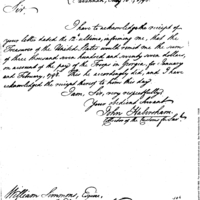 Savannah, May 10th, 1798.
Sir,
I have to acknowledge the receipt of
your letter dated the 12th informing me, that the
Treasurer of the United States would send me the sum
of three thousand seven hundred and ninety seven dollars,
on account of the pay of the Troops in Georgia, for January
and February, 1798. This he accordingly did, and I have
acknowledged the receipt thereof to him this day.
I am, Sir, very respectfully
Your obedient servant
John Habersham
William Simmons, Esquire,